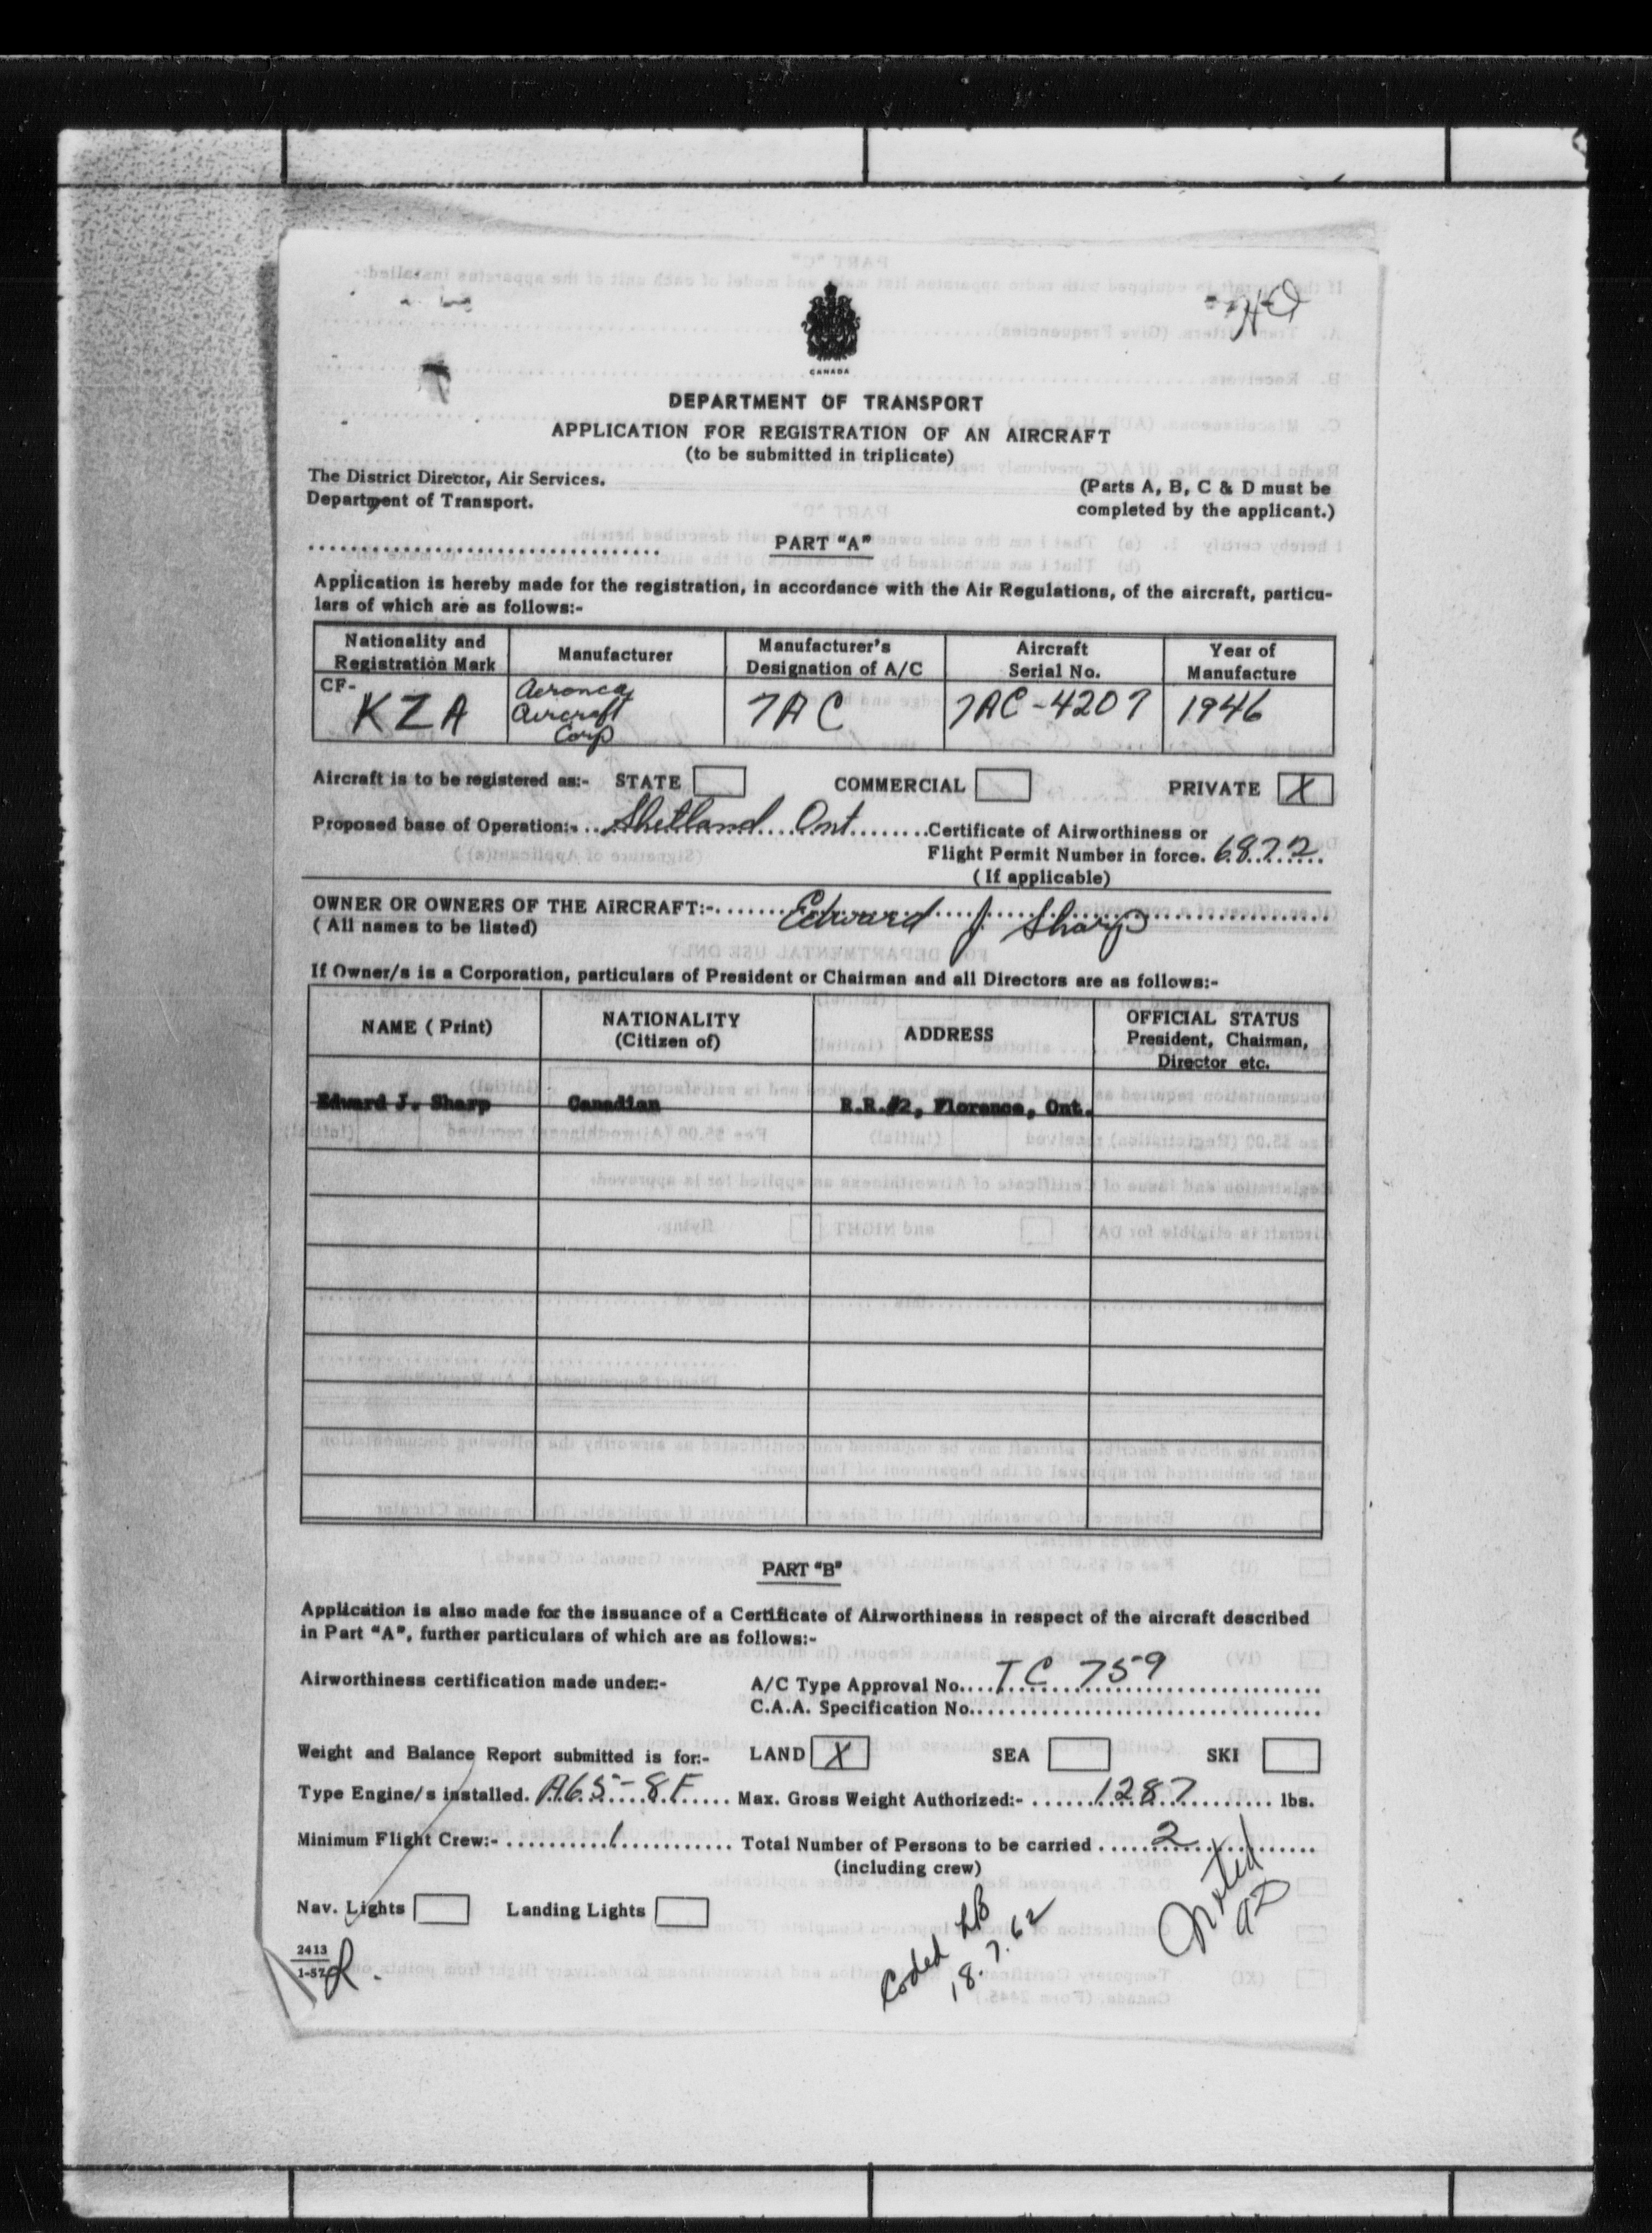 HQ
CANADA
DEPARTMENT OF TRANSPORT
APPLICATION FOR REGISTRATION OF AN AIRCRAFT
(to be submitted in triplicate)
The District Director, Air Services.
Department of Transport.
(Parts A, B, C & D must be
completed by the applicant.)
PART "A"
Application is hereby made for the registration, in accordance with the Air Regulations, of the aircraft, particu-
lars of which are as follows:-
Nationality and Registration Mark
Manufacturer
Manufacturer's Designation of A/C
Aircraft Serial No.
Year of Manufacture
CF- KZA
Aeronca Aircraft Corp
7AC
7AC-4207
1946
Aircraft is to be registered as:- STATE COMMERCIAL PRIVATE X
Proposed base of Operation:- Shetland Ont Certificate of Airworthiness or
Flight Permit Number in force. 6872
(If applicable)
OWNER OR OWNERS OF THE AIRCRAFT:- Edward J. Sharp
(All names to be listed)
If Owner/s is a Corporation, particulars of President or Chairman and all Directors are as follows:-
NAME (Print)
NATIONALITY (Citizen of)
ADDRESS
OFFICIAL STATUS President, Chairman, Director etc.
Edward J. Sharp Canadian R.R.#2, Florence, Ont.
PART "B"
Application is also made for the issuance of a Certificate of Airworthiness in respect of the aircraft described
in Part "A", further particulars of which are as follows:-
Airworthiness certification made under:- A/C Type Approval No. TC 759
C.A.A. Specification No.
Weight and Balance Report submitted is for:- LAND X SEA SKI
Type Engine/s installed. A65-8F Max. Gross Weight Authorized:- 1287 lbs.
Minimum Flight Crew:- 1 Total Number of Persons to be carried 2
(including crew)
Nav. Lights Landing Lights
Coded LB
18.7.62
Noted
2413
1-57